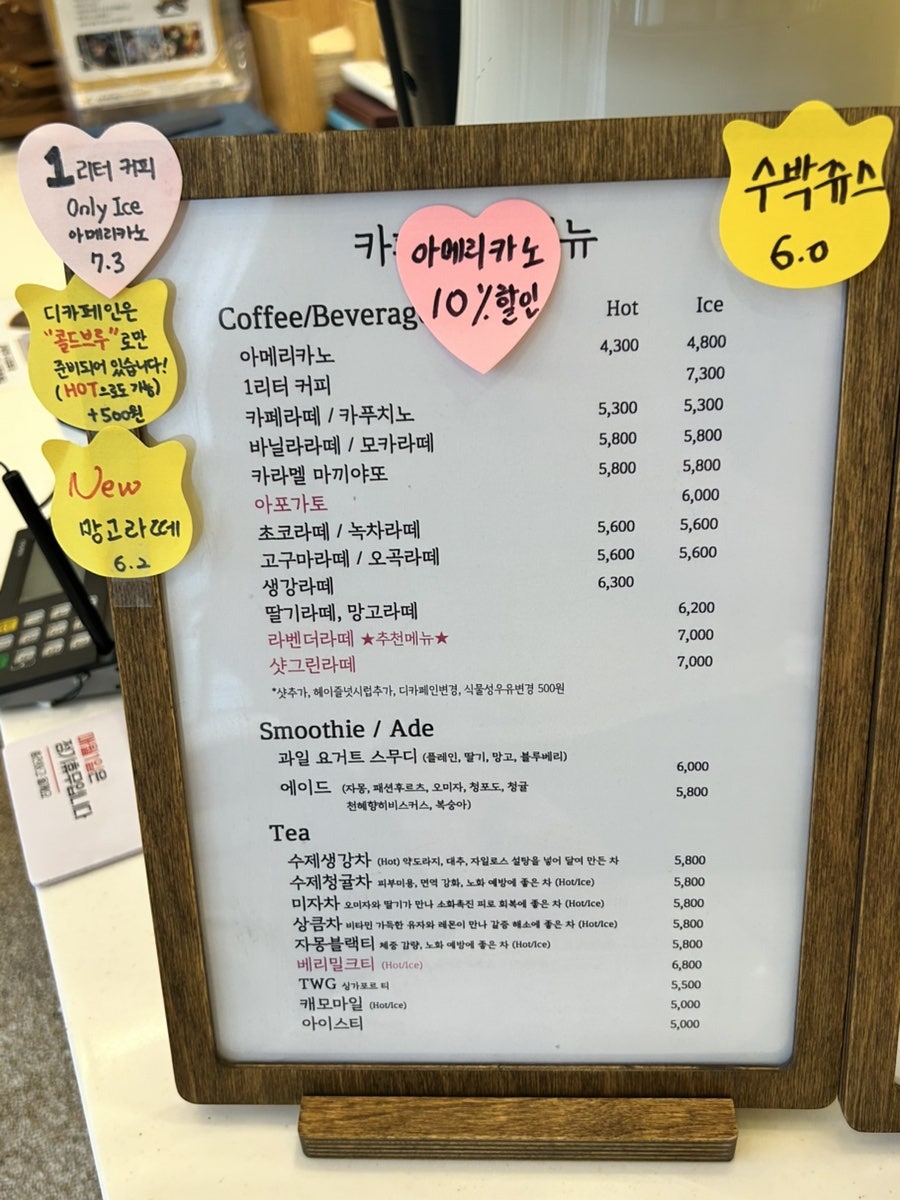 1리터 커피
Only Ice
아메리카노
7.3
디카페인은
"콜드브루"로만
준비되어 있습니다!
(HOT으로도 가능)
+500원
New
망고라떼
6.2
수박쥬스
6.0
아메리카노
10% 할인
카 뉴
Coffee/Beverag Hot Ice
아메리카노 4,300 4,800
1리터 커피 7,300
카페라떼 / 카푸치노 5,300 5,300
바닐라라떼 / 모카라떼 5,800 5,800
카라멜 마끼야또 5,800 5,800
아포가토 6,000
초코라떼 / 녹차라떼 5,600 5,600
고구마라떼 / 오곡라떼 5,600 5,600
생강라떼 6,300
딸기라떼, 망고라떼 6,200
라벤더라떼 ★추천메뉴★ 7,000
샷그린라떼 7,000
*샷추가, 헤이즐넛시럽추가, 디카페인변경, 식물성우유변경 500원
Smoothie / Ade
과일 요거트 스무디 (플레인, 딸기, 망고, 블루베리) 6,000
에이드 (자몽, 패션후르츠, 오미자, 청포도, 청귤 5,800
천혜향히비스커스, 복숭아)
Tea
수제생강차 (Hot) 약도라지, 대추, 자일로스 설탕을 넣어 달여 만든 차 5,800
수제청귤차 피부미용, 면역 강화, 노화 예방에 좋은 차 (Hot/Ice) 5,800
미자차 오미자와 딸기가 만나 소화촉진 피로 회복에 좋은 차 (Hot/Ice) 5,800
상큼차 비타민 가득한 유자와 레몬이 만나 갈증 해소에 좋은 차 (Hot/Ice) 5,800
자몽블랙티 체중 감량, 노화 예방에 좋은 차 (Hot/Ice) 5,800
베리밀크티 (Hot/Ice) 6,800
TWG 싱가포르 티 5,500
캐모마일 (Hot/Ice) 5,000
아이스티 5,000
정기휴무입니다